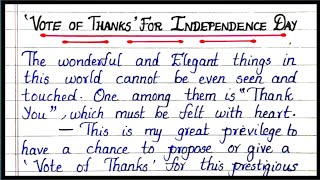 'Vote of Thanks' For Independence Day
The wonderful and Elegant things in
this world cannot be even seen and
touched. One among them is "Thank
You", which must be felt with heart.
— This is my great previlege to
have a chance to propose or give a
'Vote of Thanks' for this prestigious